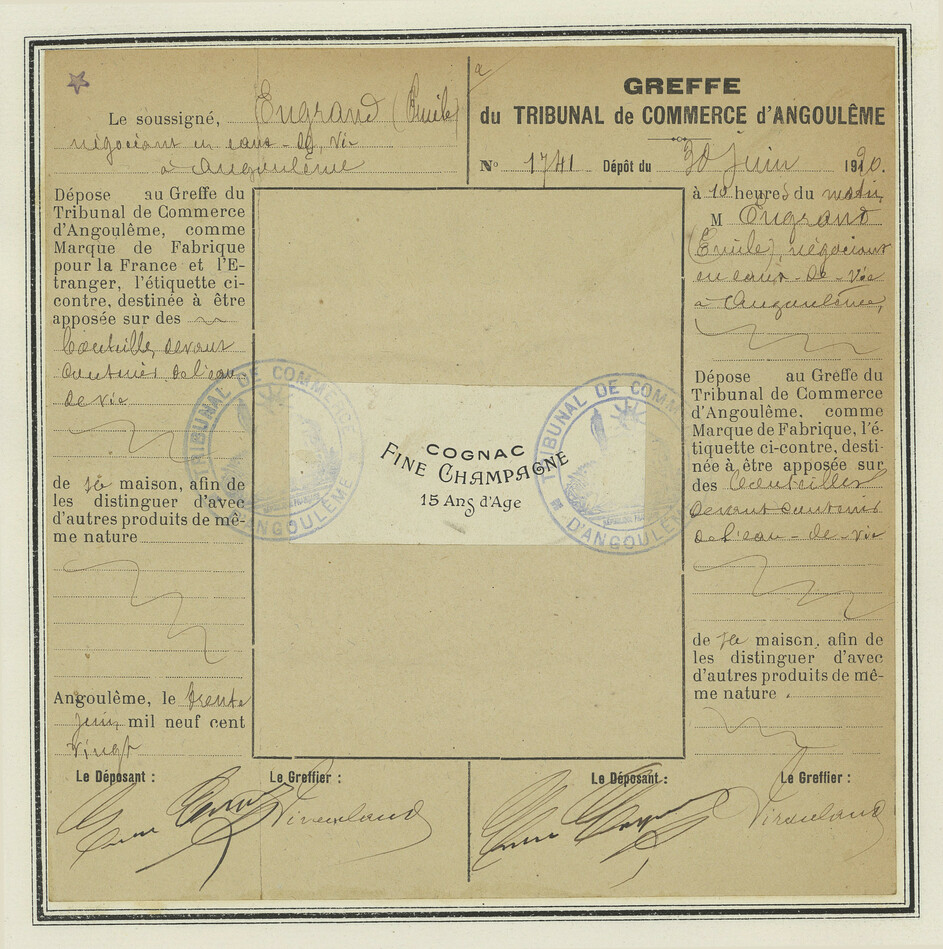 Le soussigné, Engrand (Emile)
négociant en eaux-de-vie
à Angoulême
Dépose au Greffe du
Tribunal de Commerce
d'Angoulême, comme
Marque de Fabrique
pour la France et l'E-
tranger, l'étiquette ci-
contre, destinée à être
apposée sur des
bouteilles devant
contenir de l'eau
de vie
de sa maison, afin de
les distinguer d'avec
d'autres produits de mê-
me nature
Angoulême, le trente
juin mil neuf cent
vingt
Le Déposant :
Le Greffier :
TRIBUNAL DE COMMERCE
D'ANGOULÊME
COGNAC
FINE CHAMPAGNE
15 Ans d'Age
TRIBUNAL DE COMM
D'ANGOULÊME
GREFFE
du TRIBUNAL de COMMERCE d'ANGOULÊME
No 1741 Dépôt du 30 Juin 1920.
à 10 heures du matin
M Engrand
(Emile), négociant
en eaux-de-vie
à Angoulême,
Dépose au Greffe du
Tribunal de Commerce
d'Angoulême, comme
Marque de Fabrique, l'é-
tiquette ci-contre, desti-
née à être apposée sur
des bouteilles
devant contenir
de l'eau-de-vie
de sa maison, afin de
les distinguer d'avec
d'autres produits de mê-
me nature .
Le Déposant :
Le Greffier :